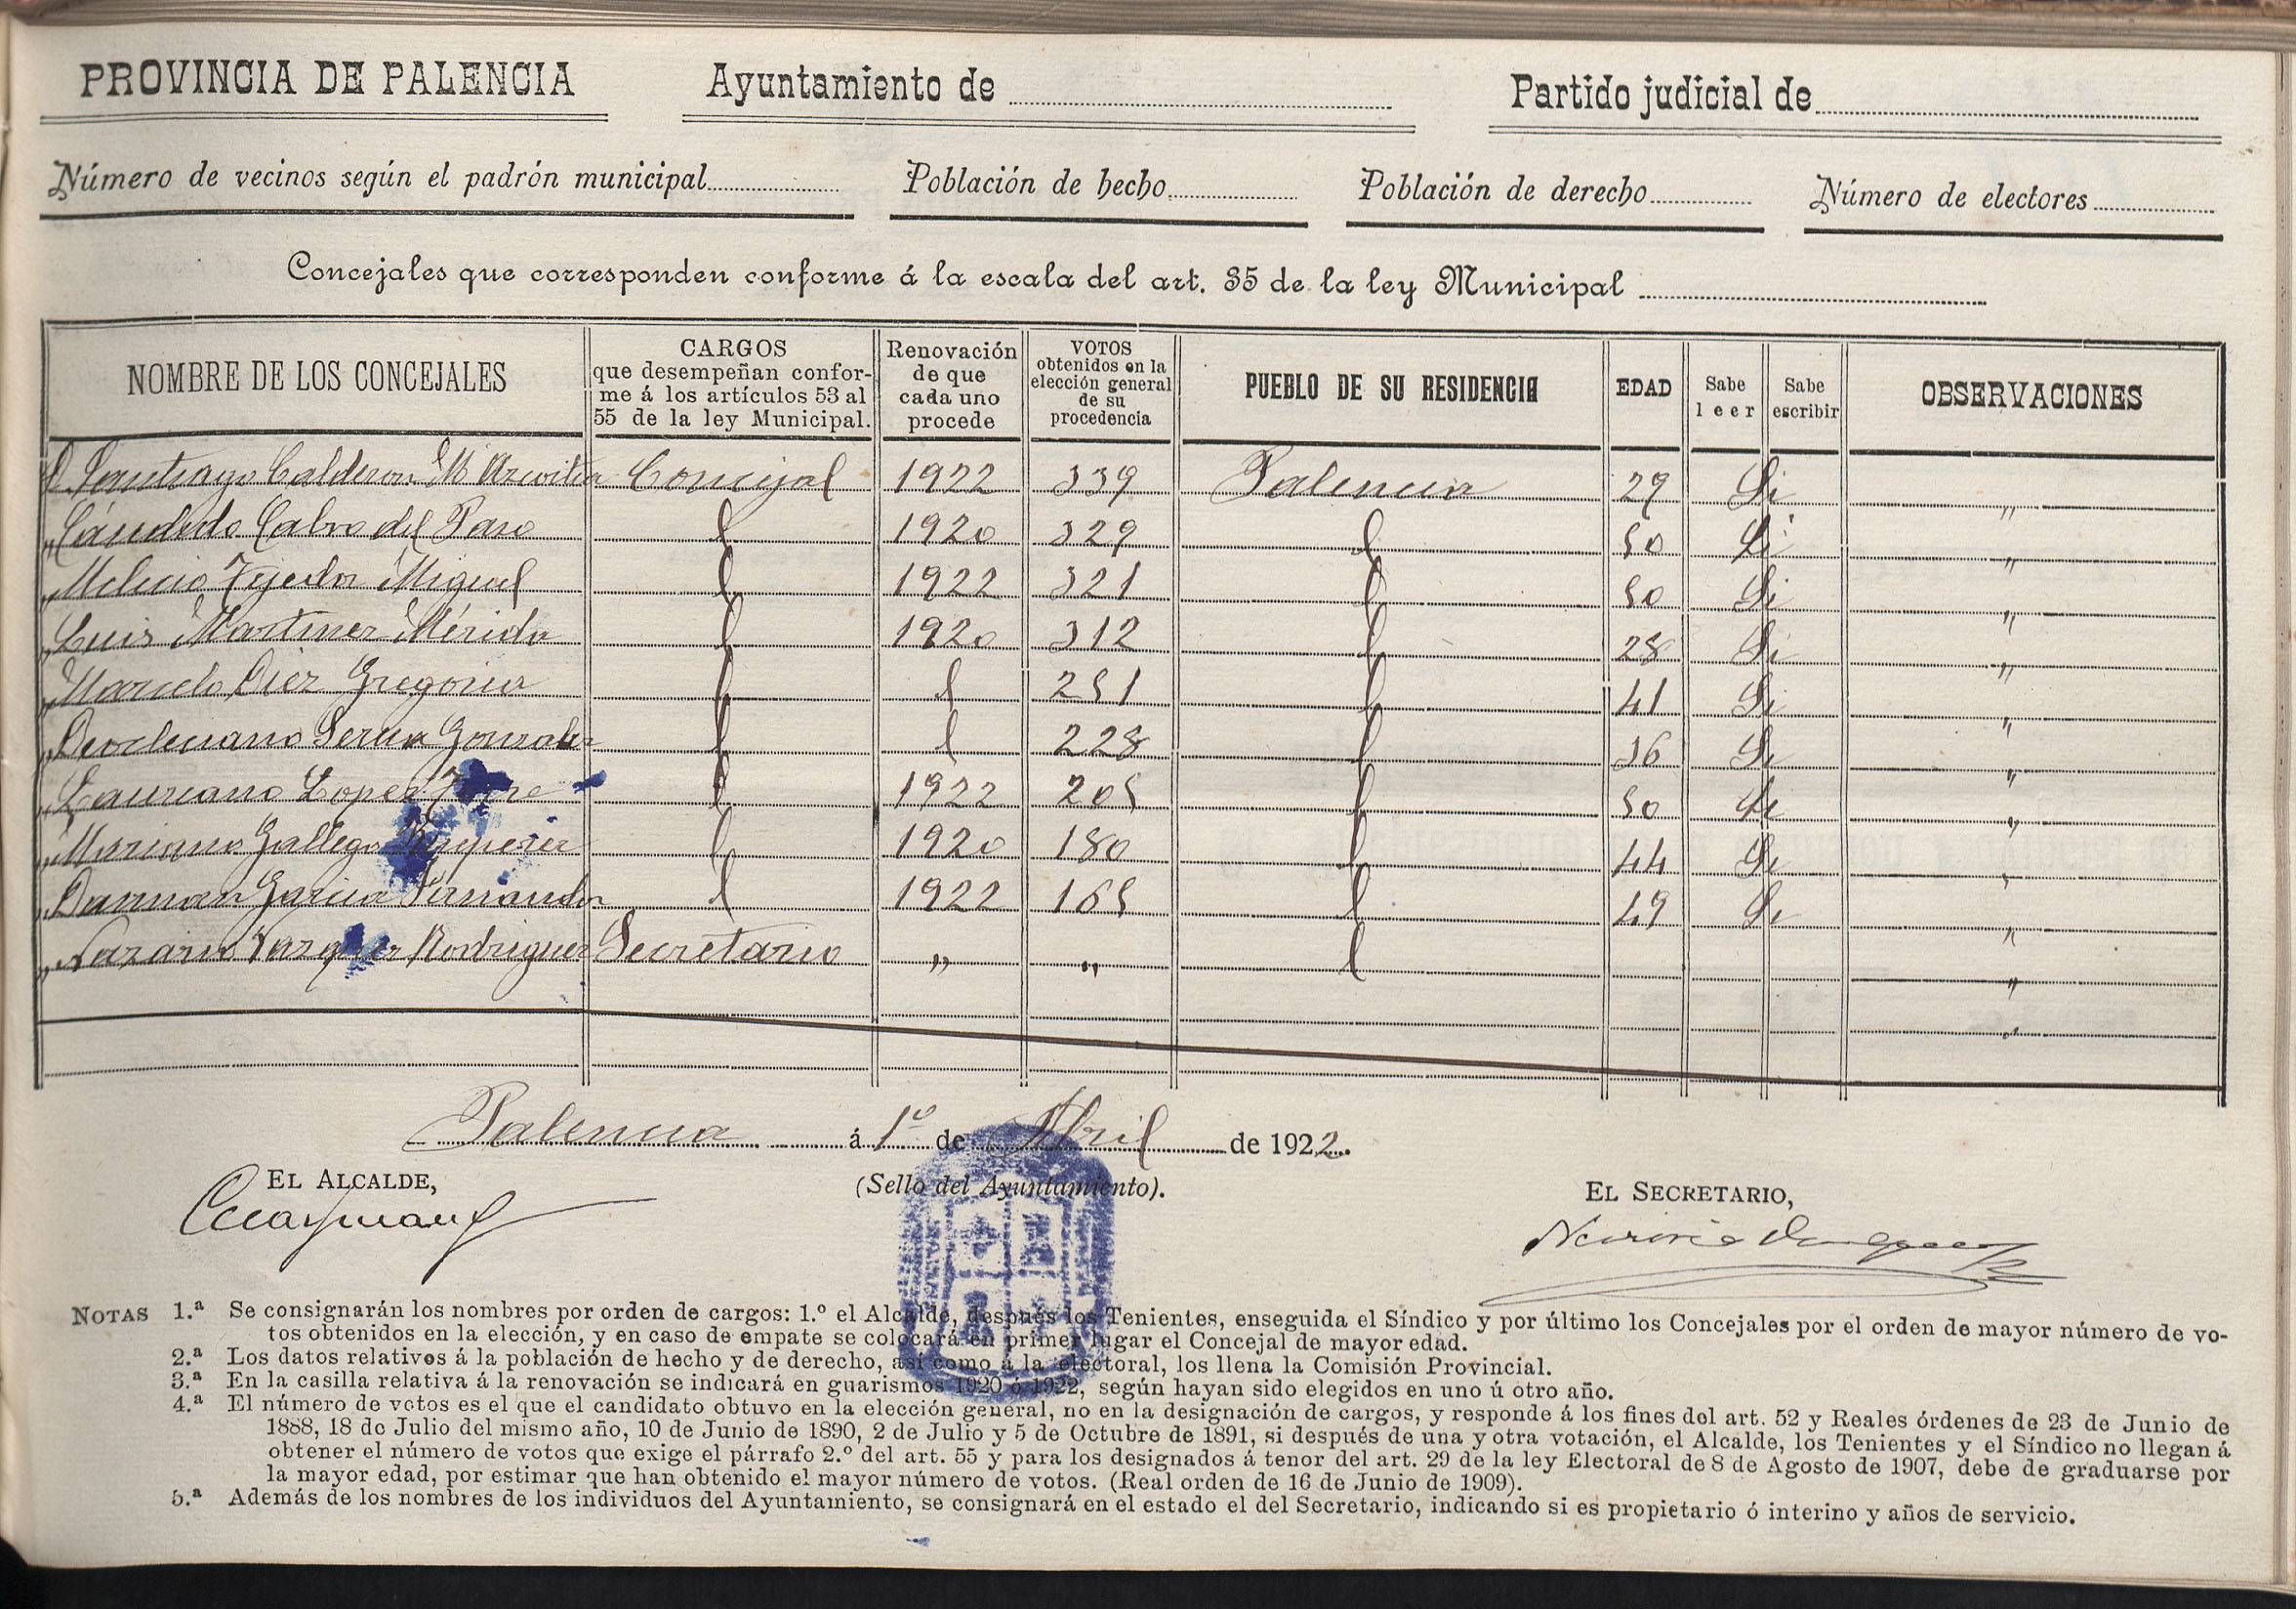 PROVINCIA DE PALENCIA Ayuntamiento de Partido judicial de
Número de vecinos según el padrón municipal Población de hecho Población de derecho Número de electores
Concejales que corresponden conforme á la escala del art. 35 de la ley Municipal
NOMBRE DE LOS CONCEJALES
CARGOS
que desempeñan confor-
me á los artículos 53 al
55 de la ley Municipal.
Renovación
de que
cada uno
procede
VOTOS
obtenidos en la
elección general
de su
procedencia
PUEBLO DE SU RESIDENCIA
EDAD
Sabe
leer
Sabe
escribir
OBSERVACIONES
D. Santiago Calderon M. Azcoitia Concejal 1922 339 Palencia 29 Si "
" Cándido Calvo del 1920 329 50 Si "
" Melecio Tejedor Miguel 1922 321 50 Si "
" Luis Martinez Mérida 1920 312 28 Si "
" Marcelo Diez Gregorio 251 41 Si "
" Deocleciano Gonzalez 228 36 Si "
" Laureano Lopez 1922 205 50 Si "
" Mariano Gallego 1920 180 44 Si "
" Damian Garcia Fernandez 1922 165 49 Si "
" Nazario Vazquez Rodriguez Secretario " " "
Palencia á 1º de Abril de 1922.
EL ALCALDE,
(Sello del Ayuntamiento).
EL SECRETARIO,
Nazario Vazquez
NOTAS 1.ª Se consignarán los nombres por orden de cargos: 1.º el Alcalde, después los Tenientes, enseguida el Síndico y por último los Concejales por el orden de mayor número de vo-
tos obtenidos en la elección, y en caso de empate se colocará en primer lugar el Concejal de mayor edad.
2.ª Los datos relativos á la población de hecho y de derecho, así como á la electoral, los llena la Comisión Provincial.
3.ª En la casilla relativa á la renovación se indicará en guarismos 1920 ó 1922, según hayan sido elegidos en uno ú otro año.
4.ª El número de votos es el que el candidato obtuvo en la elección general, no en la designación de cargos, y responde á los fines del art. 52 y Reales órdenes de 23 de Junio de
1888, 18 de Julio del mismo año, 10 de Junio de 1890, 2 de Julio y 5 de Octubre de 1891, si después de una y otra votación, el Alcalde, los Tenientes y el Síndico no llegan á
obtener el número de votos que exige el párrafo 2.º del art. 55 y para los designados á tenor del art. 29 de la ley Electoral de 8 de Agosto de 1907, debe de graduarse por
la mayor edad, por estimar que han obtenido el mayor número de votos. (Real orden de 16 de Junio de 1909).
5.ª Además de los nombres de los individuos del Ayuntamiento, se consignará en el estado el del Secretario, indicando si es propietario ó interino y años de servicio.